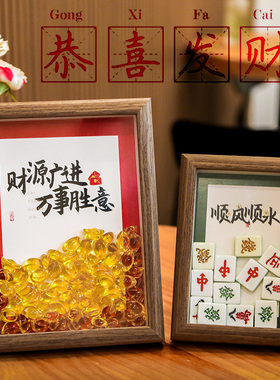 Gong Xi Fa Cai
恭喜发财
财源广进
万事胜意
顺风顺水
中 發 發
中 中 發